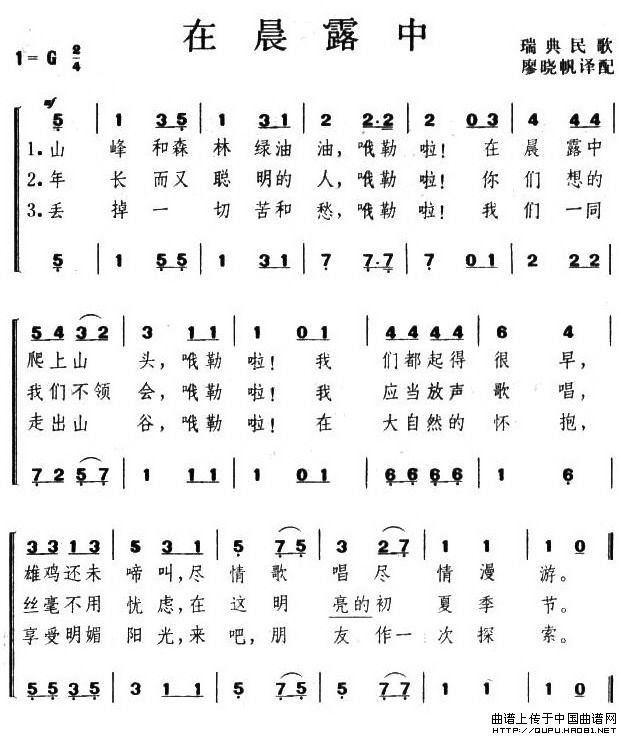 在晨露中
1=G 2/4
瑞典民歌
廖晓帆译配
mf
5 | 1 35 | 1 31 | 2 2·2 | 2 03 | 4 44
1.山 峰 和森 林 绿油 油，哦勒 啦！ 在 晨 露中
2.年 长 而又 聪 明的 人，哦勒 啦！ 你 们 想的
3.丢 掉 一 切 苦和 愁，哦勒 啦！ 我 们 一同
5 | 1 55 | 1 31 | 7 7·7 | 7 01 | 2 22
54 32 | 3 11 | 1 01 | 44 44 | 6 4
爬上山 头，哦勒 啦！ 我 们都起得 很 早，
我们不领 会，哦勒 啦！ 我 应当放声 歌 唱，
走出山 谷，哦勒 啦！ 在 大自然的 怀 抱，
72 57 | 1 11 | 1 01 | 66 66 | 1 6
33 13 | 5 31 | 5 75 | 3 27 | 1 1 | 1 0
雄鸡还未 啼 叫，尽 情 歌 唱 尽 情 漫 游。
丝毫不用 忧 虑，在 这 明 亮的初 夏 季 节。
享受明媚 阳 光，来 吧，朋 友 作一 次 探 索。
55 35 | 3 11 | 5 75 | 5 57 | 1 1 | 1 0
曲谱上传于中国曲谱网
HTTP://QUPU.HAO81.NET